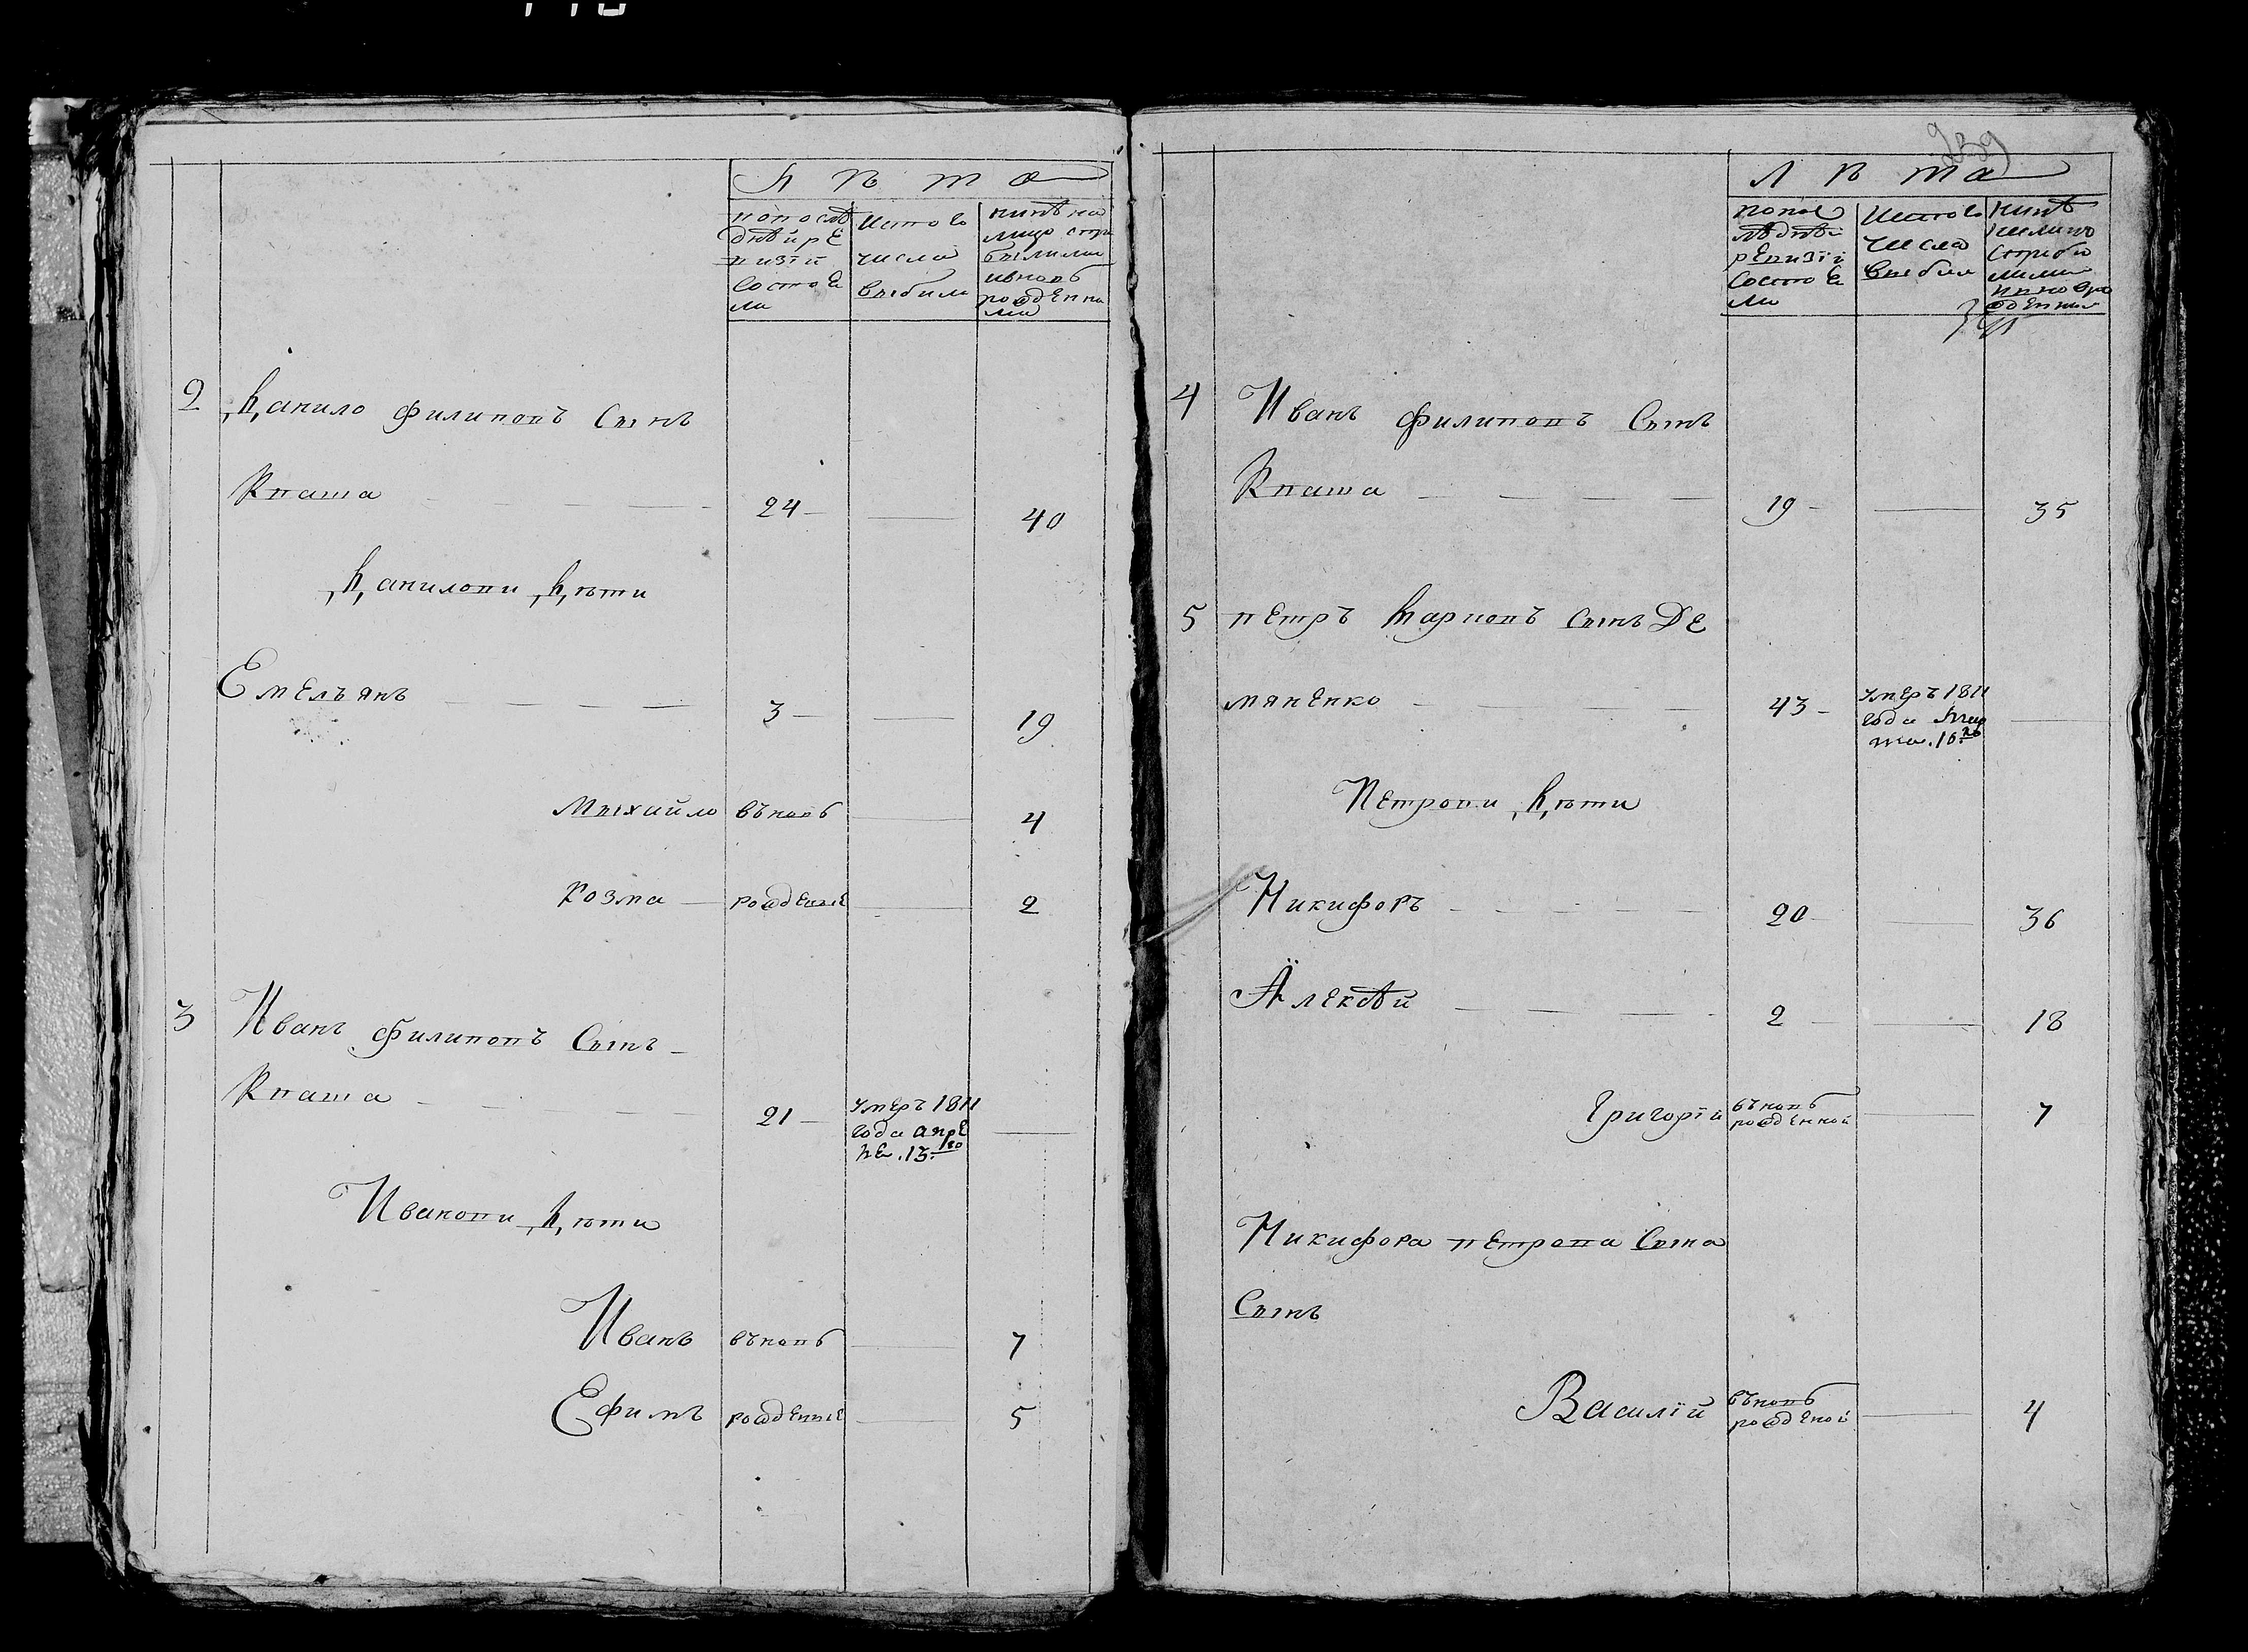 Лѣта
попослѣ
днѣй ре
визіи
состое
ли
истого
числа
выбили
нинѣ на
лицо спри
былими
ивновь
рожденны
ми
2 Данило филиповъ Сынъ
Кваша 24 40
Даниловы Дѣти
Емельянъ 3 19
Мыхайло вьновь 4
Козма рожденые 2
3 Иванъ филиповъ Сынъ
Кваша 21
умеръ 1811
года апре
ля .13.го
Ивановы Дѣти
Иванъ вьновь 7
Ефимъ рожденые 5
239
Лѣта
попос
лѣднѣй
ревизіи
состое
ли
истого
числа
выбили
нинѣ
налицо
сприбы
лими
4 Иванъ филиповъ Сынъ
Кваша 19 35
5 петръ Карповъ сынъ Де
мяненко 43
умеръ 1811
года Мар
та .10.го
Петровы Дѣти
Никифоръ 20 36
Алексѣй 2 18
Григорій вьновь 7
рожденной
Никифора петрова Сына
Сынъ
Василій вьновь 4
рожденой